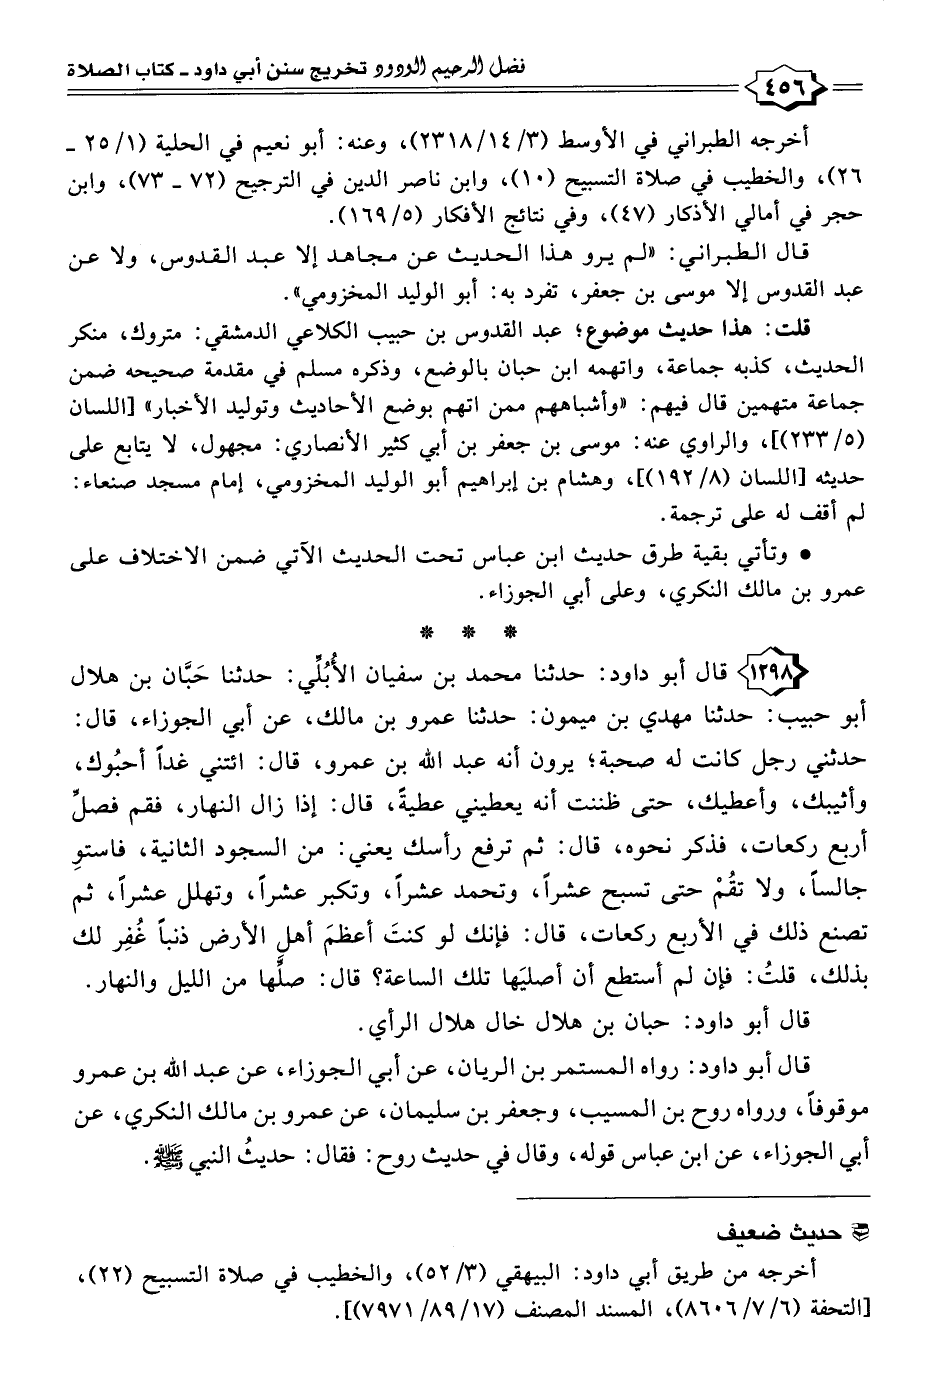 فضل الرحيم الودود تخريج سنن أبي داود ـ كتاب الصلاة
٤٥٦
أخرجه الطبراني في الأوسط (٢٣١٨/١٤/٣)، وعنه: أبو نعيم في الحلية (٢٥/١ ـ
٢٦)، والخطيب في صلاة التسبيح (١٠)، وابن ناصر الدين في الترجيح (٧٢ ـ ٧٣)، وابن
حجر في أمالي الأذكار (٤٧)، وفي نتائج الأفكار (١٦٩/٥).
قال الطبراني: «لم يرو هذا الحديث عن مجاهد إلا عبد القدوس، ولا عن
عبد القدوس إلا موسى بن جعفر، تفرد به: أبو الوليد المخزومي».
قلت: هذا حديث موضوع؛ عبد القدوس بن حبيب الكلاعي الدمشقي: متروك، منكر
الحديث، كذبه جماعة، واتهمه ابن حبان بالوضع، وذكره مسلم في مقدمة صحيحه ضمن
جماعة متهمين قال فيهم: «وأشباههم ممن اتهم بوضع الأحاديث وتوليد الأخبار» [اللسان
(٢٣٣/٥)]، والراوي عنه: موسى بن جعفر بن أبي كثير الأنصاري: مجهول، لا يتابع على
حديثه [اللسان (١٩٢/٨)]، وهشام بن إبراهيم أبو الوليد المخزومي، إمام مسجد صنعاء:
لم أقف له على ترجمة.
• وتأتي بقية طرق حديث ابن عباس تحت الحديث الآتي ضمن الاختلاف على
عمرو بن مالك النكري، وعلى أبي الجوزاء.
* * *
١٢٩٨ قال أبو داود: حدثنا محمد بن سفيان الأُبُلِّي: حدثنا حَبَّان بن هلال
أبو حبيب: حدثنا مهدي بن ميمون: حدثنا عمرو بن مالك، عن أبي الجوزاء، قال:
حدثني رجل كانت له صحبة؛ يرون أنه عبد الله بن عمرو، قال: ائتني غداً أحبُوك،
وأثيبك، وأعطيك، حتى ظننت أنه يعطيني عطيةً، قال: إذا زال النهار، فقم فصلِّ
أربع ركعات، فذكر نحوه، قال: ثم ترفع رأسك يعني: من السجود الثانية، فاستوِ
جالساً، ولا تقُمْ حتى تسبح عشراً، وتحمد عشراً، وتكبر عشراً، وتهلل عشراً، ثم
تصنع ذلك في الأربع ركعات، قال: فإنك لو كنتَ أعظمَ أهلِ الأرض ذنباً غُفِر لك
بذلك، قلتُ: فإن لم أستطع أن أصليَها تلك الساعة؟ قال: صلِّها من الليل والنهار.
قال أبو داود: حبان بن هلال خال هلال الرأي.
قال أبو داود: رواه المستمر بن الريان، عن أبي الجوزاء، عن عبد الله بن عمرو
موقوفاً، ورواه روح بن المسيب، وجعفر بن سليمان، عن عمرو بن مالك النكري، عن
أبي الجوزاء، عن ابن عباس قوله، وقال في حديث روح: فقال: حديثُ النبي ﷺ.
حديث ضعيف
أخرجه من طريق أبي داود: البيهقي (٥٢/٣)، والخطيب في صلاة التسبيح (٢٢)،
[التحفة (٨٦٠٦/٧/٦)، المسند المصنف (٧٩٧١/٨٩/١٧)].